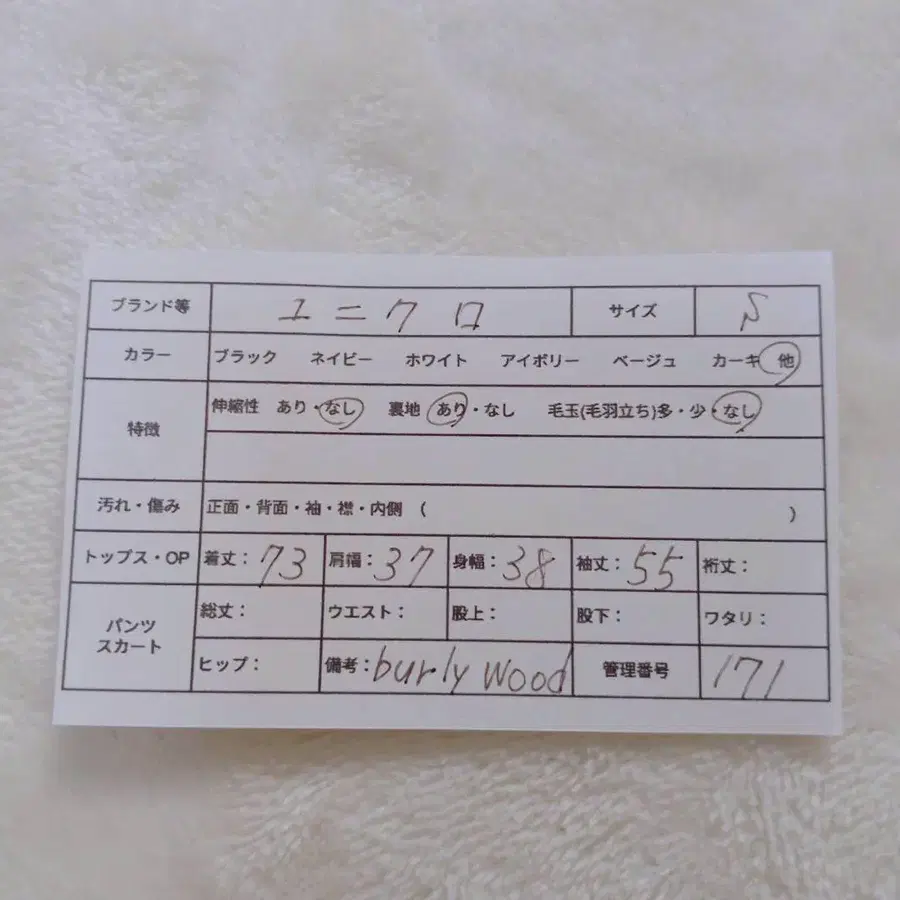 ブランド等 ユニクロ サイズ S
カラー ブラック ネイビー ホワイト アイボリー ベージュ カーキ 他
特徴 伸縮性 あり・なし 裏地 あり・なし 毛玉(毛羽立ち)多・少・なし
汚れ・傷み 正面・背面・袖・襟・内側 ( )
トップス・OP 着丈：73 肩幅：37 身幅：38 袖丈：55 裄丈：
パンツ
スカート
総丈： ウエスト： 股上： 股下： ワタリ：
ヒップ： 備考：burly wood 管理番号 171